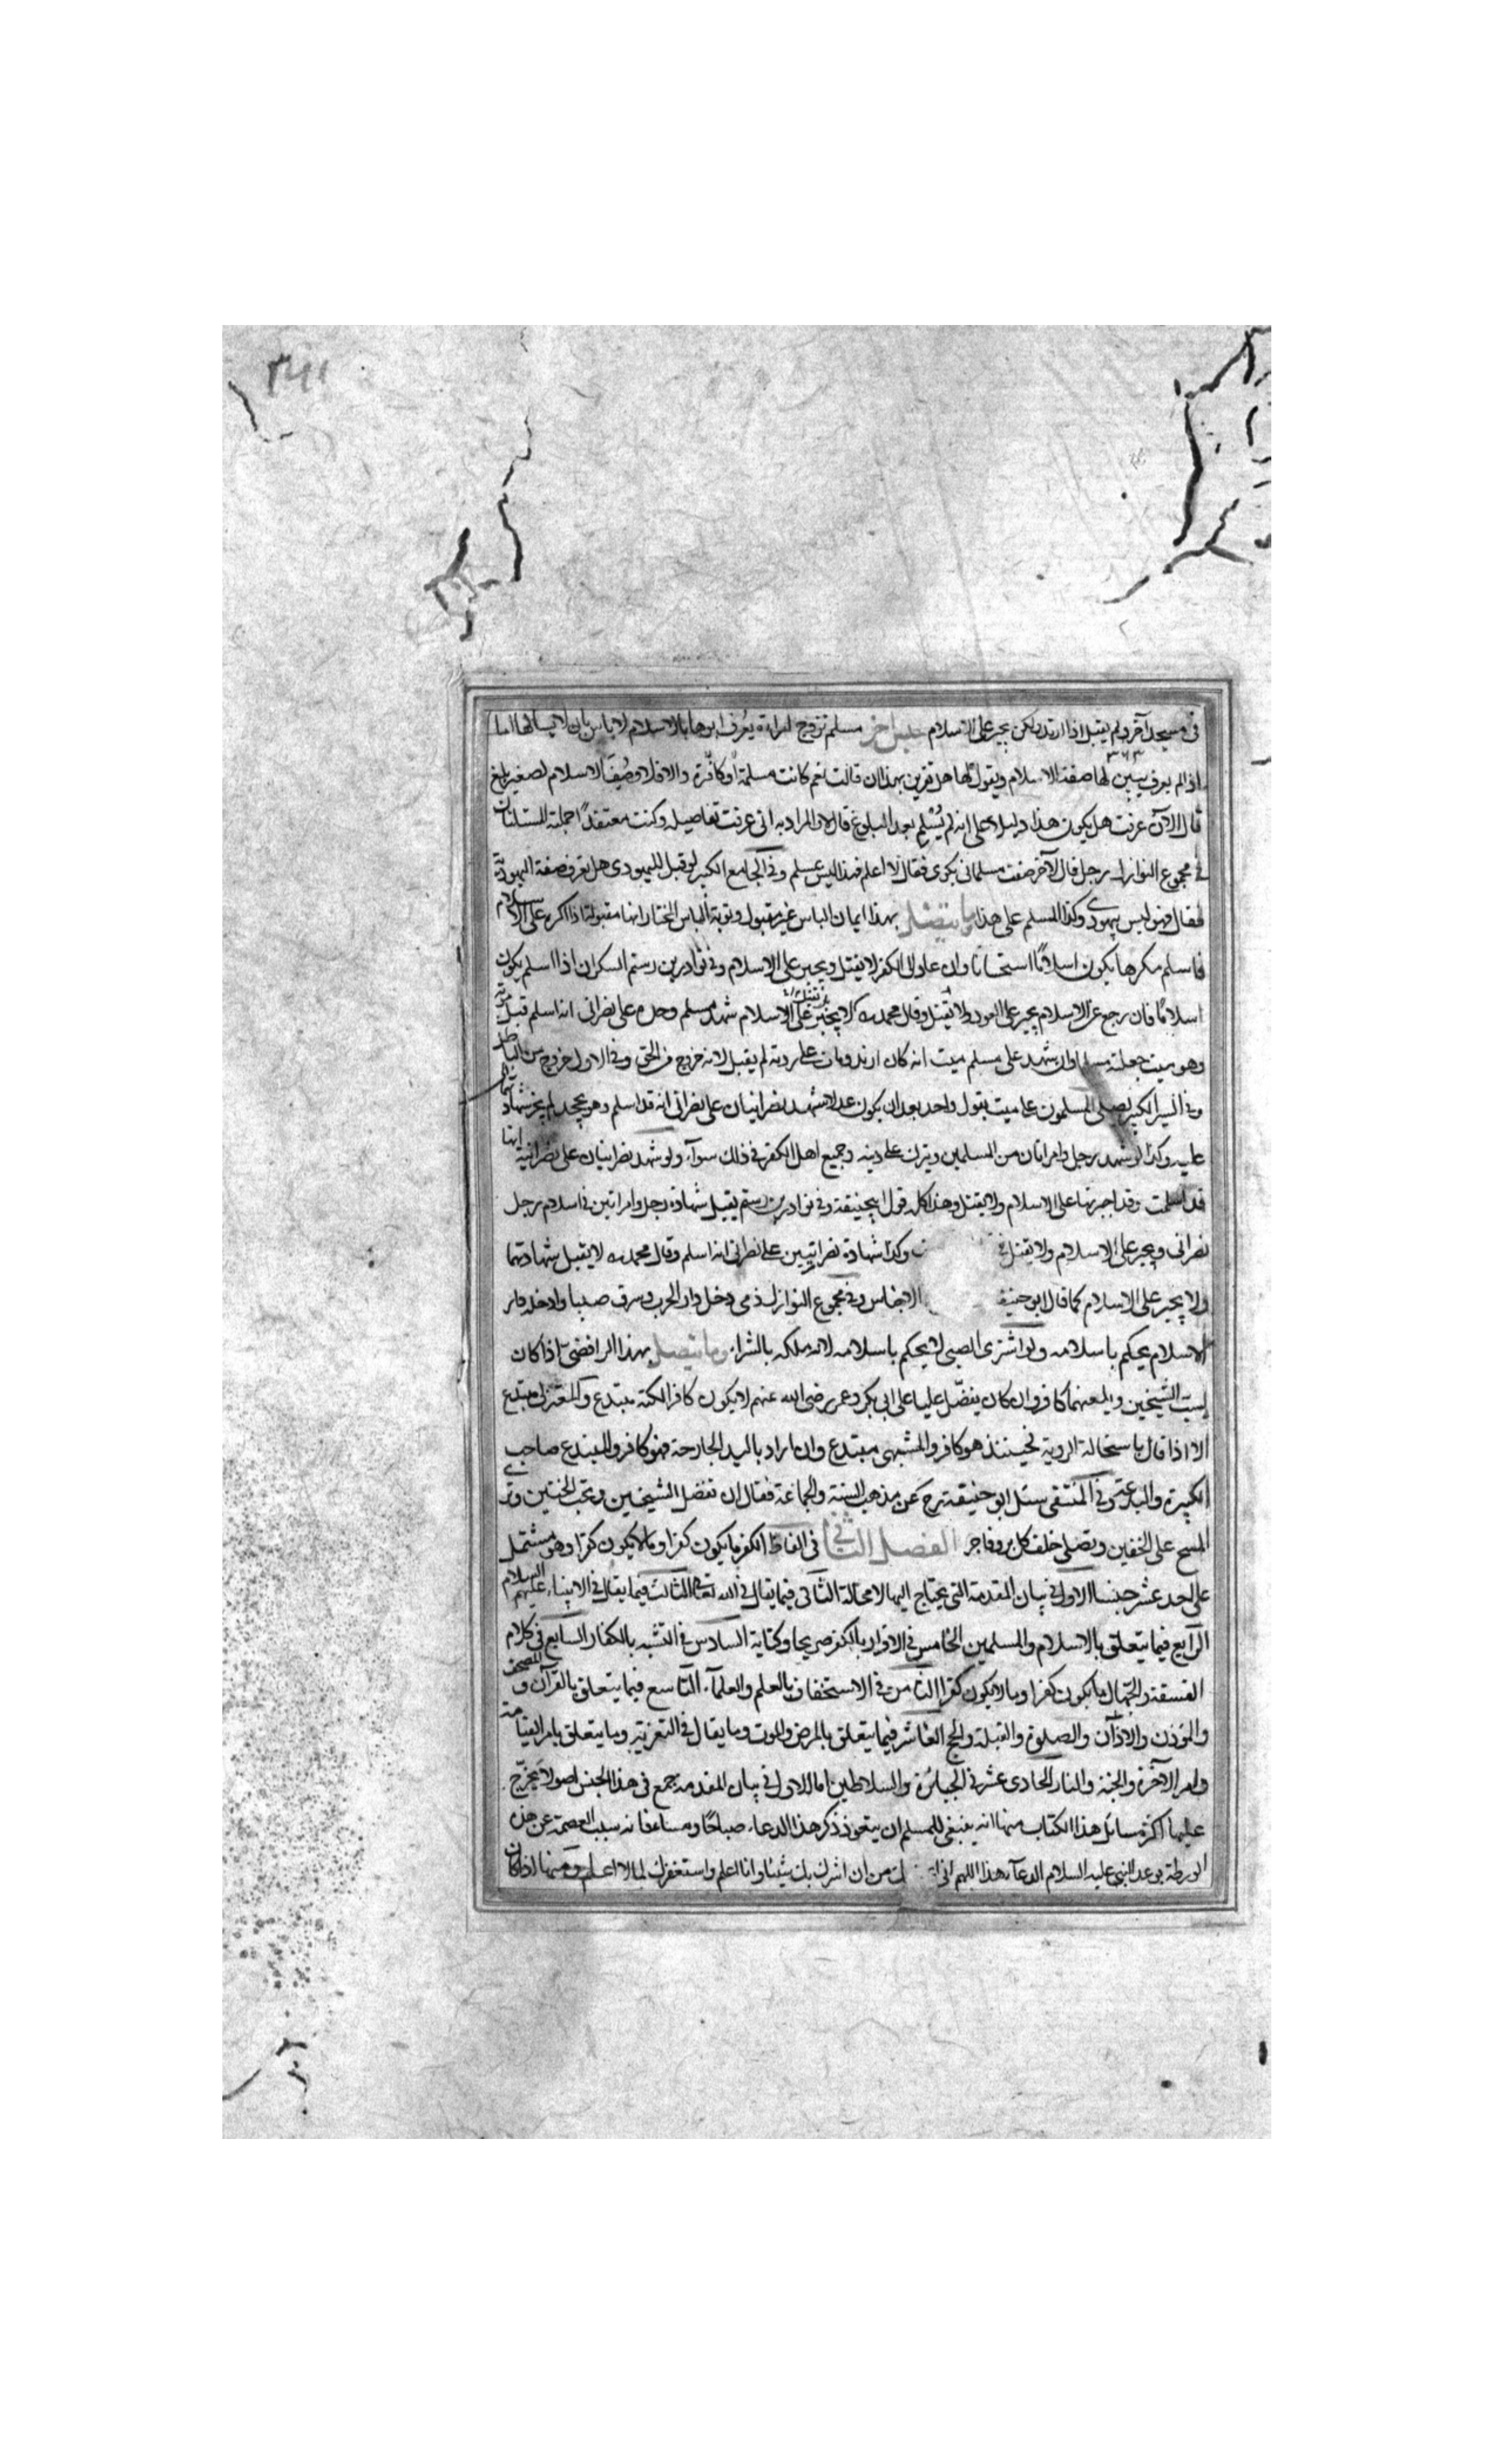 ٣٤١
في مسجد آخر ولم يقبل اذا ارتد ولكن يجبر على الاسلام جنس آخر مسلم تزوج امراة يعرف ابوها بالاسلام لا باس بان لا يسالها اما
اذا لم يعرف يبين لها صفة الاسلام ويقول لها هل تقرين بهذا ان قالت نعم كانت مسلمة او كافرة والا فلا وصف الاسلام لصغير بلغ
قال الآن عرفت هل يكون هذا دليلا على انه لم يسلم بعد البلوغ قال لا المراد به اني عرفت تفاصيله وكنت معتقدا جملته المسئلتان
في مجموع النوازل رجل قال لآخر صفت مسلماني بكوى فقال لا اعلم فهذا ليس بمسلم وفي الجامع الكبير لو قيل لليهودي هل تعرف صفة اليهودية
فقال فهو ليس يهودي وكذا المسلم على هذا وما يتصل بهذا ايمان الباس غير مقبول وتوبة الباس المختار انها مقبولة اذا اكره على الاسلام
فاسلم مكرها يكون اسلاما استحسانا وان عاد الى الكفر لا يقتل ويجبر على الاسلام وفي نوادر بن رستم السكران اذا اسلم يكون
اسلاما فان رجع عن الاسلام يجبر على العود ولا يقتل وقال محمد رح لا يجبر على الاسلام شهد مسلم وحده على نصراني انه اسلم قبل موته
وهو ميت جعلته مسلما وان شهد على مسلم ميت انه كان ارتد ومات على ردته لم يقبل لانه خروج من الحق وفي الاول خروج من الباطل
وفي السير الكبير يصلي المسلمون على ميت بقول واحد بعد ان يكون عدلا شهد نصرانيان على نصراني انه قد اسلم وهو يجحد لم يجز شهادتهما
عليه وكذا لو شهد رجل وامراتان من المسلمين ويترك على دينه وجميع اهل الكفر في ذلك سوآء ولو شهد نصرانيان على نصرانية انها
قد اسلمت وقد اجبرتها على الاسلام ولا يقتل وهذا كله قول ابي حنيفة وفي نوادر بن رستم يقبل شهادة رجل وامراتين في اسلام رجل
نصراني ويجبر على الاسلام ولا يقتل وكذا شهادة نصرانيين على نصراني انه اسلم وقال محمد رح لا يقبل شهادتهما
ولا يجبر على الاسلام كما قال ابو حنيفة الاجناس وفي مجموع النوازل ذمي دخل دار الحرب وسرق صبيا وادخله دار
الاسلام يحكم باسلامه ولو اشترى الصبي لا يحكم باسلامه لانه ملكه بالشراء وما يتصل بهذا الرافضي اذا كان
يسب الشيخين ويلعنهما كافر وان كان يفضل عليا على ابي بكر وعمر رضي الله عنهم لا يكون كافرا لكنه مبتدع والمعتزلي مبتدع
الا اذا قال باستحالة الروية فحينئذ هو كافر والمشبهي مبتدع وان اراد باليد الجارحة فهو كافر والمبتدع صاحب
الكبيرة والبدعة وفي المنتقى سئل ابو حنيفة رح عن مذهب السنة والجماعة فقال ان تفضل الشيخين وتحب الختنين وترى
المسح على الخفين وتصلي خلف كل بر وفاجر الفصل الثاني في الفاظ الكفر ما يكون كفرا وما لا يكون كفرا وهو مشتمل
على احد عشر جنسا الاول في بيان المقدمة التي يحتاج اليها لا محالة الثاني فيما يقال في الله تعالى الثالث فيما يقال في الانبياء عليهم السلام
الرابع فيما يتعلق بالاسلام والمسلمين الخامس في الاقرار بالكفر صريحا وكناية السادس في التشبه بالكفار السابع في كلام
الفسقة والجهال ما يكون كفرا وما لا يكون كفرا الثامن في الاستخفاف بالعلم والعلمآء التاسع فيما يتعلق بالقرآن و المصحف
والمؤذن والاذان والصلوة والقبلة والحج العاشر فيما يتعلق بالمرض والموت وما يقال في التعزية وما يتعلق بامر القيامة
وامر الآخرة والجنة والنار الحادي عشر في الجبابرة والسلاطين اما الاول في بيان المقدمة جمع في هذا الجنس اصولا يخرج
عليها اكثر مسائل هذا الكتاب منها انه ينبغي للمسلم ان يتعوذ ذكر هذا الدعاء صباحا ومساء فانه سبب العصمة عن هذه
الورطة بوعد النبي عليه السلام الدعآء هذا اللهم اني من ان اشرك بك شيئا وانا اعلم واستغفرك لما لا اعلم ومنها اذا كان